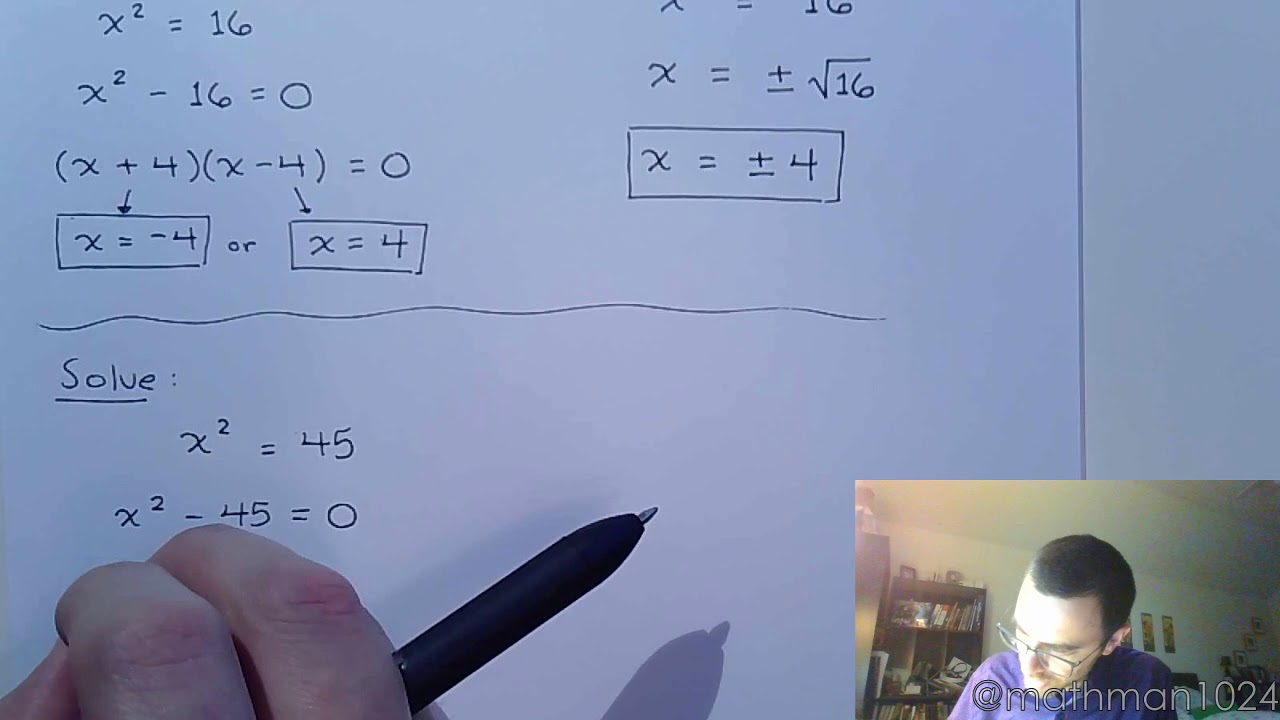 x² = 16
x² - 16 = 0
(x + 4)(x - 4) = 0
x = -4 or x = 4
x = 16
x = ± √16
x = ± 4
Solve:
x² = 45
x² - 45 = 0
@mathman1024